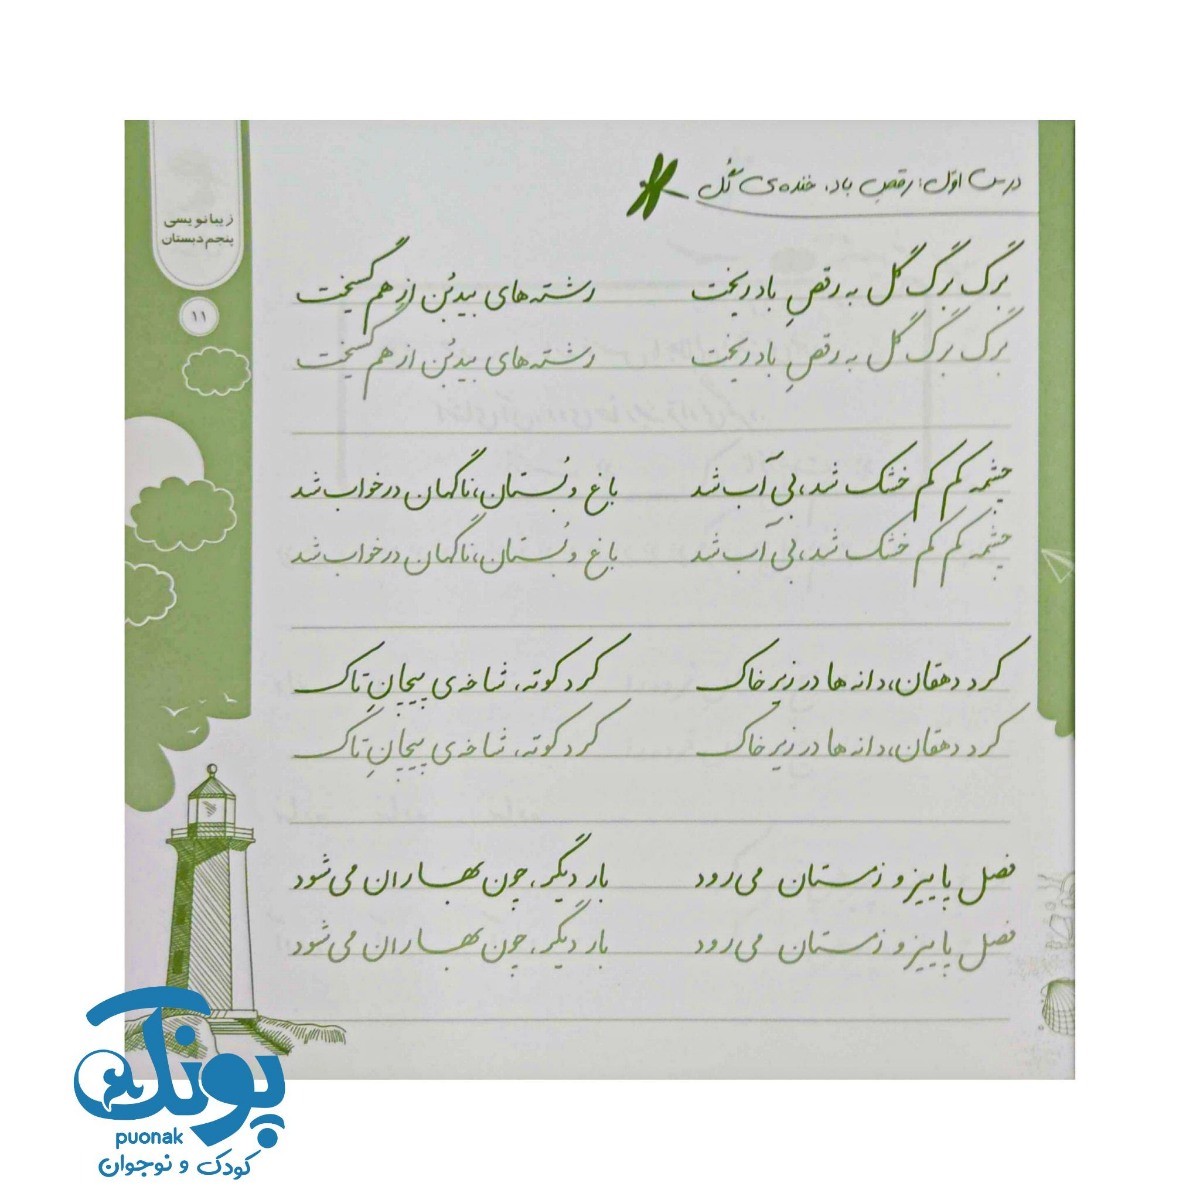 زیبانویسی
پنجم دبستان
۱۱
درس اوّل: رقصِ باد، خنده‌ی گُل
برگ برگ گل به رقصِ باد ریخت رشته‌های بیدبُن از هم گسیخت
برگ برگ گل به رقصِ باد ریخت رشته‌های بیدبُن از هم گسیخت
چشمه کم کم خشک شد، بی آب شد باغ و بُستان، ناگهان در خواب شد
چشمه کم کم خشک شد، بی آب شد باغ و بُستان، ناگهان در خواب شد
کرد دهقان، دانه ها در زیر خاک کرد کوته، شاخه‌ی پیچانِ تاک
کرد دهقان، دانه ها در زیر خاک کرد کوته، شاخه‌ی پیچانِ تاک
فصل پاییز و زمستان می‌رود بار دیگر، چون بهاران می‌شود
فصل پاییز و زمستان می‌رود بار دیگر، چون بهاران می‌شود
پونک
puonak
کودک و نوجوان